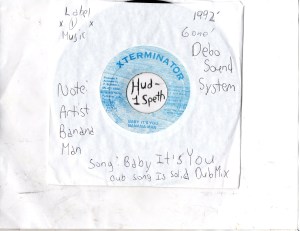 Label
x N x
Music
1992'
Gono'
Debo
Sound
System
XTERMINATOR
Hud-
1 Speth
BABY IT'S YOU
BANANA MAN
Note'
Artist
Banana
Man
Song' Baby It's You
Dub Song Is Solid Dub Mix